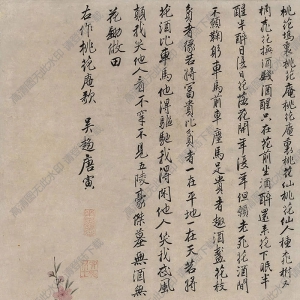 桃花塢裏桃花庵桃花庵裏桃花仙桃花仙人種桃樹又
折花枝換酒錢酒醒只在花前坐酒醉還來花下眠半
醒半醉日復日花落花開年復年但願老死花酒間
不願鞠躬車馬前車塵馬足貴者趣酒盞花枝
貧者緣若將富貴比貧者一在平地一在天若將
花酒比車馬他得驅馳我得閑他人笑我忒風
顛我笑他人看不穿不見五陵豪傑墓無酒無
花鋤做田
右作桃花庵歌
吳趨唐寅